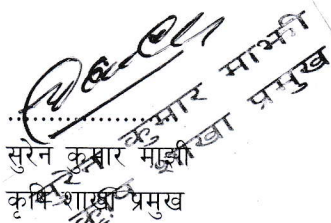 ....................
सुरेन कुमार माझी
कृषि शाखा प्रमुख
सुरेन कुमार माझी
कृषि शाखा प्रमुख